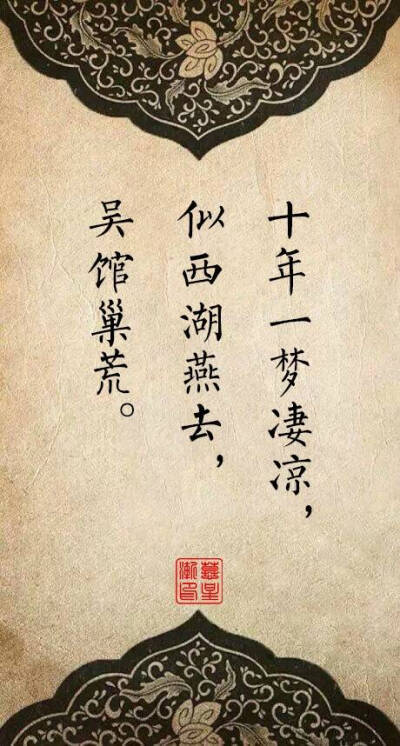 十年一梦凄凉，
似西湖燕去，
吴馆巢荒。